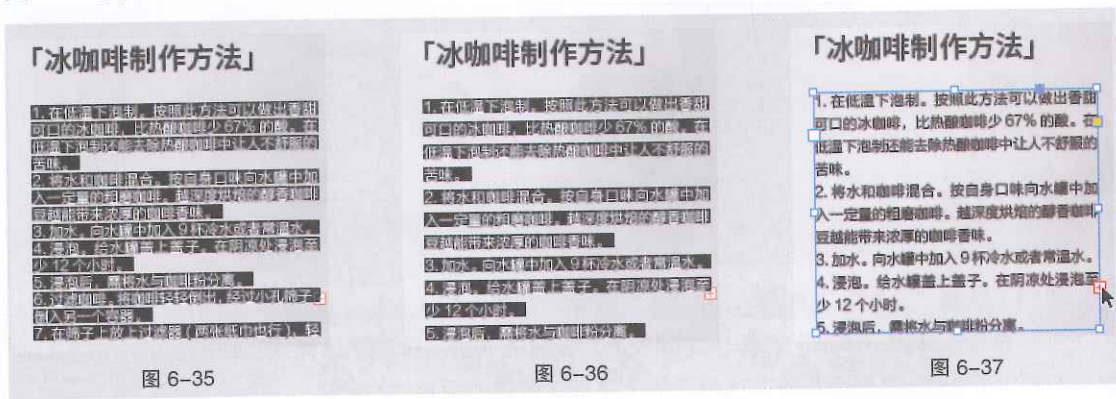 「冰咖啡制作方法」
1. 在低温下泡制。按照此方法可以做出香甜
可口的冰咖啡，比热酿咖啡少 67% 的酸。在
低温下泡制还能去除热酿咖啡中让人不舒服的
苦味。
2. 将水和咖啡混合。按自身口味向水罐中加
入一定量的粗磨咖啡。越深度烘焙的醇香咖啡
豆越能带来浓厚的咖啡香味。
3. 加水。向水罐中加入 9 杯冷水或者常温水。
4. 浸泡。给水罐盖上盖子。在阴凉处浸泡至
少 12 个小时。
5. 浸泡后，需将水与咖啡粉分离。
6. 过滤咖啡。将咖啡轻轻倒出，经过小孔筛子，
倒入另一个容器。
7. 在筛子上放上过滤器（两张纸巾也行）、轻
图 6-35
「冰咖啡制作方法」
1. 在低温下泡制。按照此方法可以做出香甜
可口的冰咖啡，比热酿咖啡少 67% 的酸。在
低温下泡制还能去除热酿咖啡中让人不舒服的
苦味。
2. 将水和咖啡混合。按自身口味向水罐中加
入一定量的粗磨咖啡。越深度烘焙的醇香咖啡
豆越能带来浓厚的咖啡香味。
3. 加水。向水罐中加入 9 杯冷水或者常温水。
4. 浸泡。给水罐盖上盖子。在阴凉处浸泡至
少 12 个小时。
5. 浸泡后，需将水与咖啡粉分离。
图 6-36
「冰咖啡制作方法」
1. 在低温下泡制。按照此方法可以做出香甜
可口的冰咖啡，比热酿咖啡少 67% 的酸。在
低温下泡制还能去除热酿咖啡中让人不舒服的
苦味。
2. 将水和咖啡混合。按自身口味向水罐中加
入一定量的粗磨咖啡。越深度烘焙的醇香咖啡
豆越能带来浓厚的咖啡香味。
3. 加水。向水罐中加入 9 杯冷水或者常温水。
4. 浸泡。给水罐盖上盖子。在阴凉处浸泡至
少 12 个小时。
5. 浸泡后，需将水与咖啡粉分离。
图 6-37